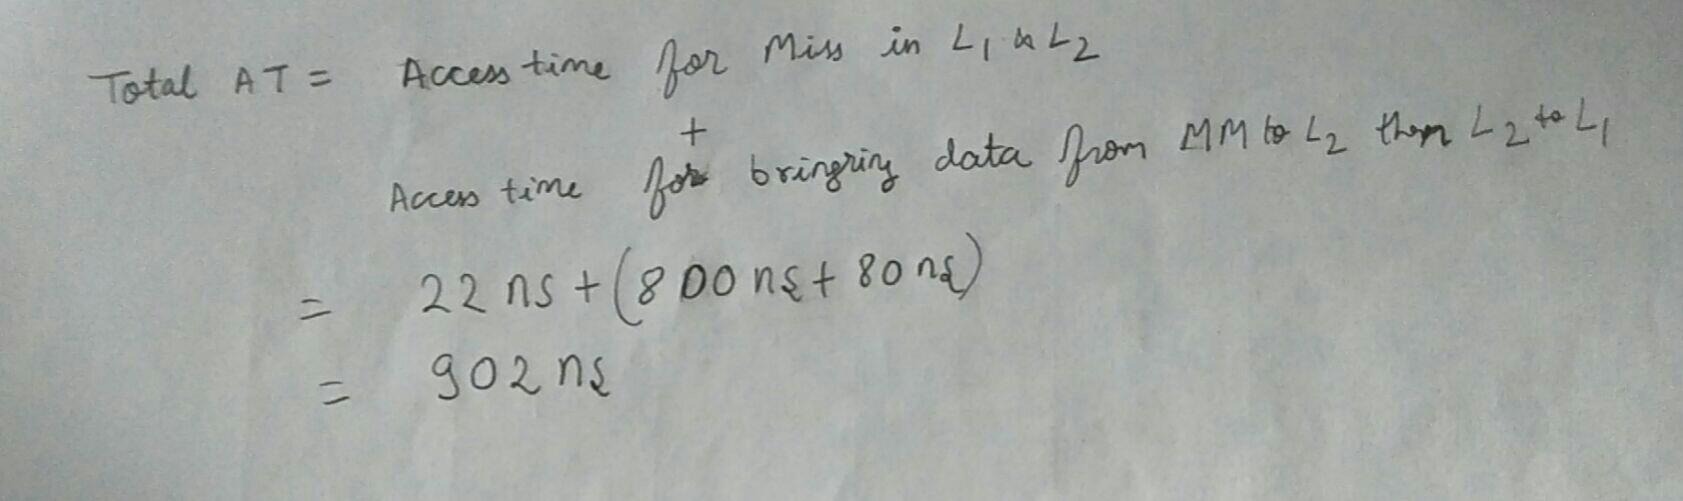 Total AT = Access time for Miss in L1 & L2
+
Access time for bringring data from MM to L2 then L2 to L1
= 22 ns + (800 ns + 80 ns)
= 902 ns